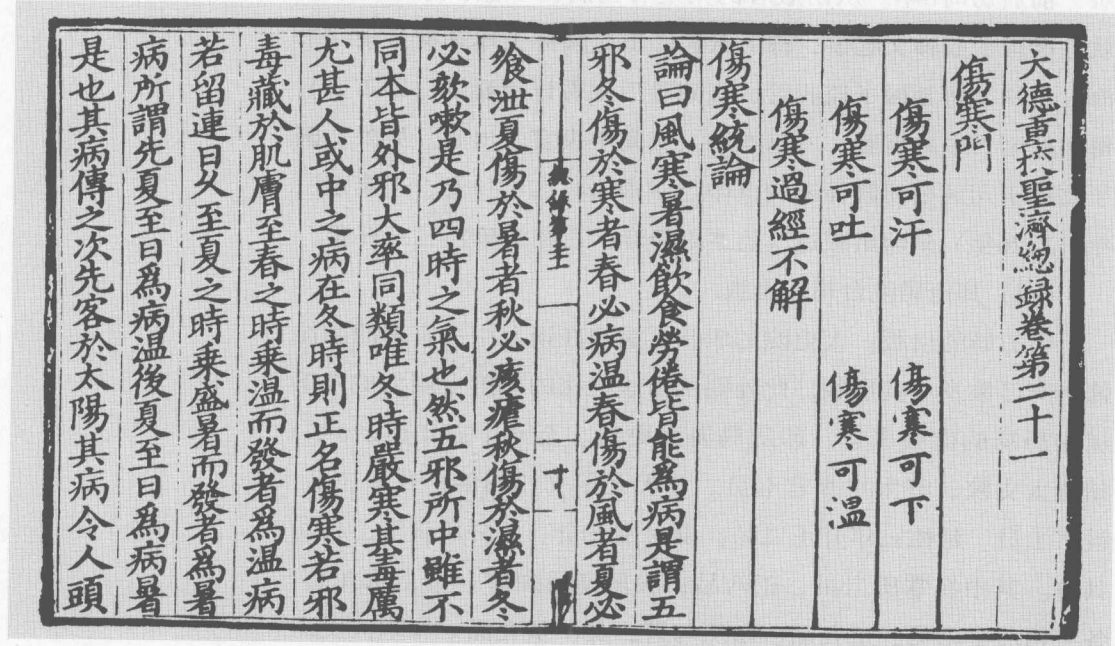 大德重校聖濟總録卷第二十一
傷寒門
傷寒可汗 傷寒可下
傷寒可吐 傷寒可温
傷寒過經不解
傷寒統論
論曰風寒暑濕飲食勞倦皆能爲病是謂五
邪冬傷於寒者春必病温春傷於風者夏必
飧泄夏傷於暑者秋必痎瘧秋傷於濕者冬
必欬嗽是乃四時之氣也然五邪所中雖不
同本皆外邪大率同類唯冬時嚴寒其毒厲
尤甚人或中之病在冬時則正名傷寒若邪
毒藏於肌膚至春之時乗温而發者爲温病
若留連日久至夏之時乗盛暑而發者爲暑
病所謂先夏至日爲病温後夏至日爲病暑
是也其病傳之次先客於太陽其病令人頭